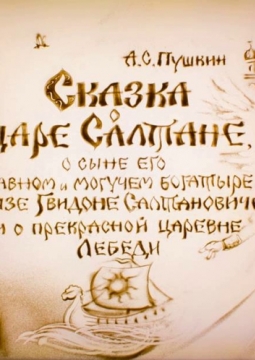 А.С. Пушкин
Сказка о
царе Салтане,
о сыне его
авном и могучем богатыре
язе Гвидоне Салтановиче
и о прекрасной царевне
Лебеди